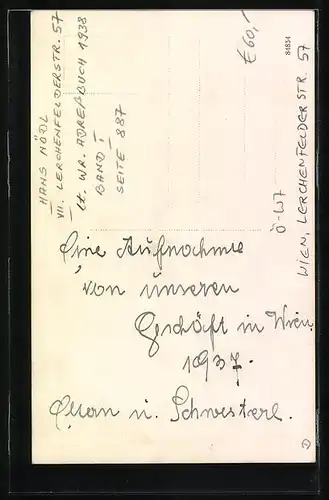 HANS MÖDL
VII. LERCHENFELDERSTR. 57
Lt. WR. ADREßBUCH 1938
BAND I
SEITE 887
€60,-
84834
WIEN, LERCHENFELDER STR. 57
Ö-W7
Eine Aufnahme
von unseren
Geschäft in Wien
1937.
Eltern u. Schwesterl.
D